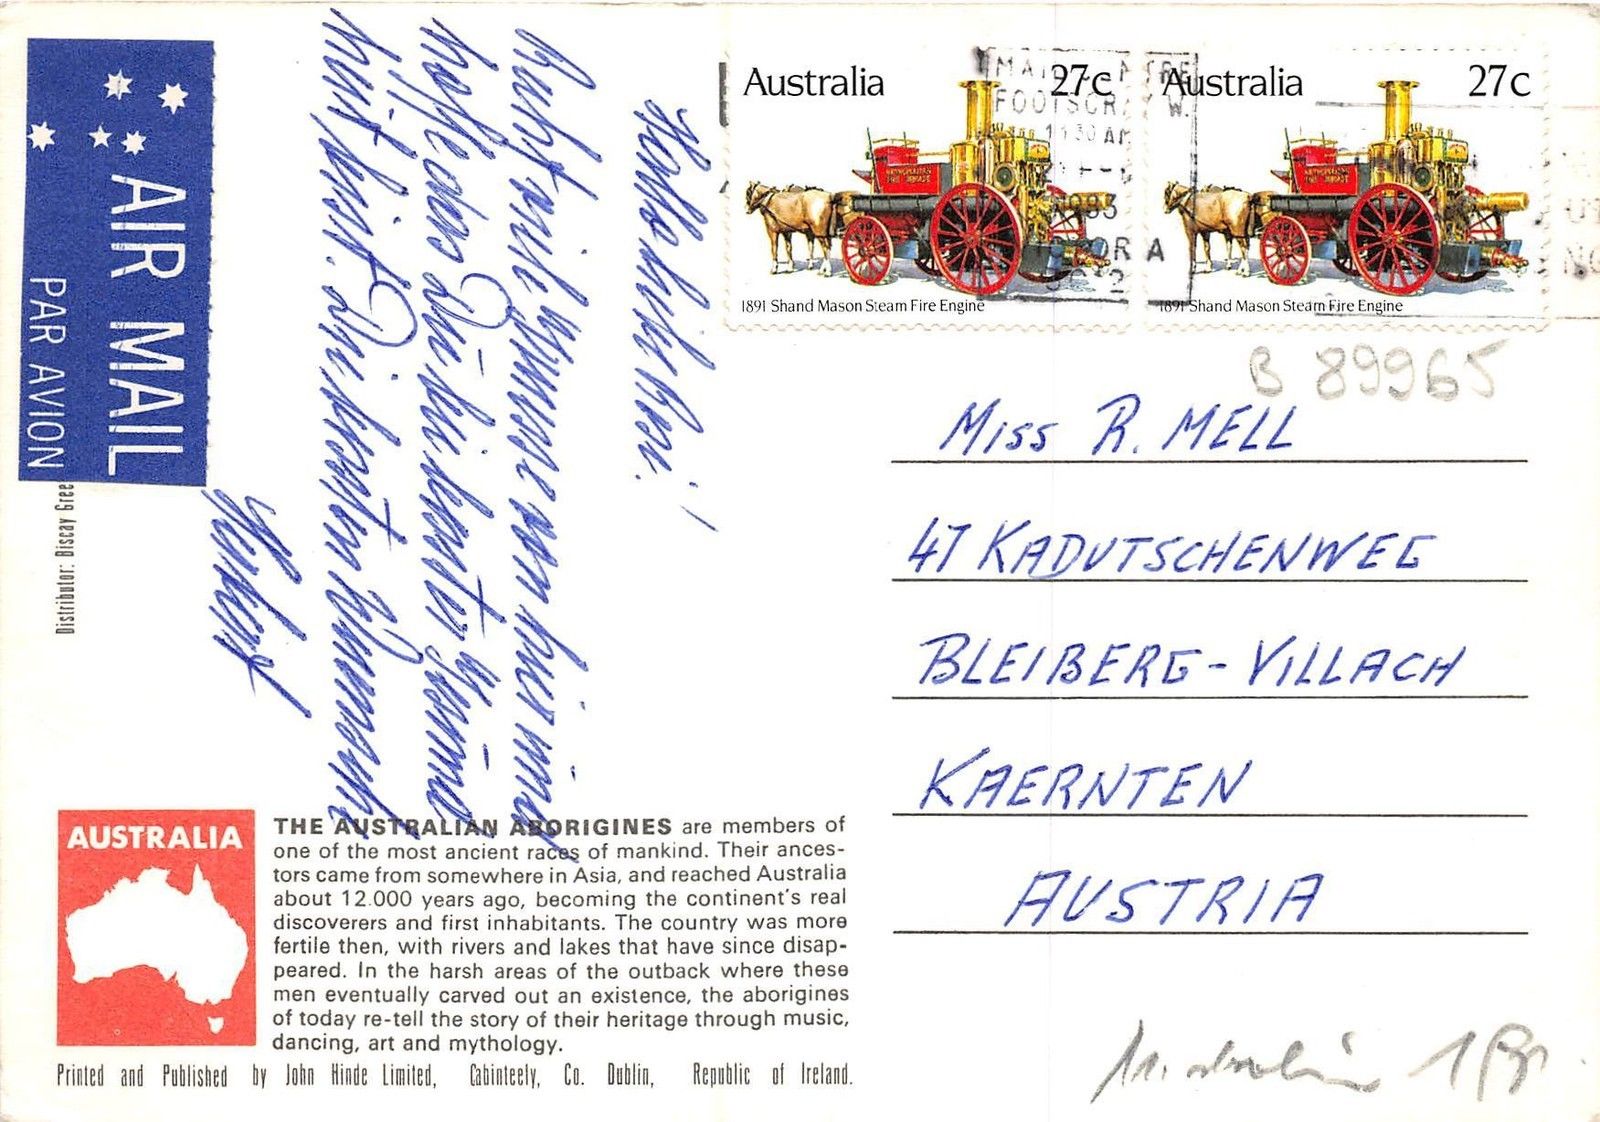 AIR MAIL
PAR AVION
Distributor: Biscay Gree
Hallo liebe Rosi!
Recht viele Grüsse von hier und
hoffe das Du bei bester Gesund
heit bist. Die besten Wünsche
Herbert
Australia 27c
1891 Shand Mason Steam Fire Engine
Australia 27c
1891 Shand Mason Steam Fire Engine
METROPOLITAN
FIRE BRIGADE
FOOTSCRAY W.
1130 AM
1983
B 89965
MISS R. MELL
47 KADUTSCHENWEG
BLEIBERG-VILLACH
KAERNTEN
AUSTRIA
AUSTRALIA
THE AUSTRALIAN ABORIGINES are members of
one of the most ancient races of mankind. Their ances-
tors came from somewhere in Asia, and reached Australia
about 12.000 years ago, becoming the continent's real
discoverers and first inhabitants. The country was more
fertile then, with rivers and lakes that have since disap-
peared. In the harsh areas of the outback where these
men eventually carved out an existence, the aborigines
of today re-tell the story of their heritage through music,
dancing, art and mythology.
Printed and Published by John Hinde Limited, Cabinteely, Co. Dublin, Republic of Ireland.